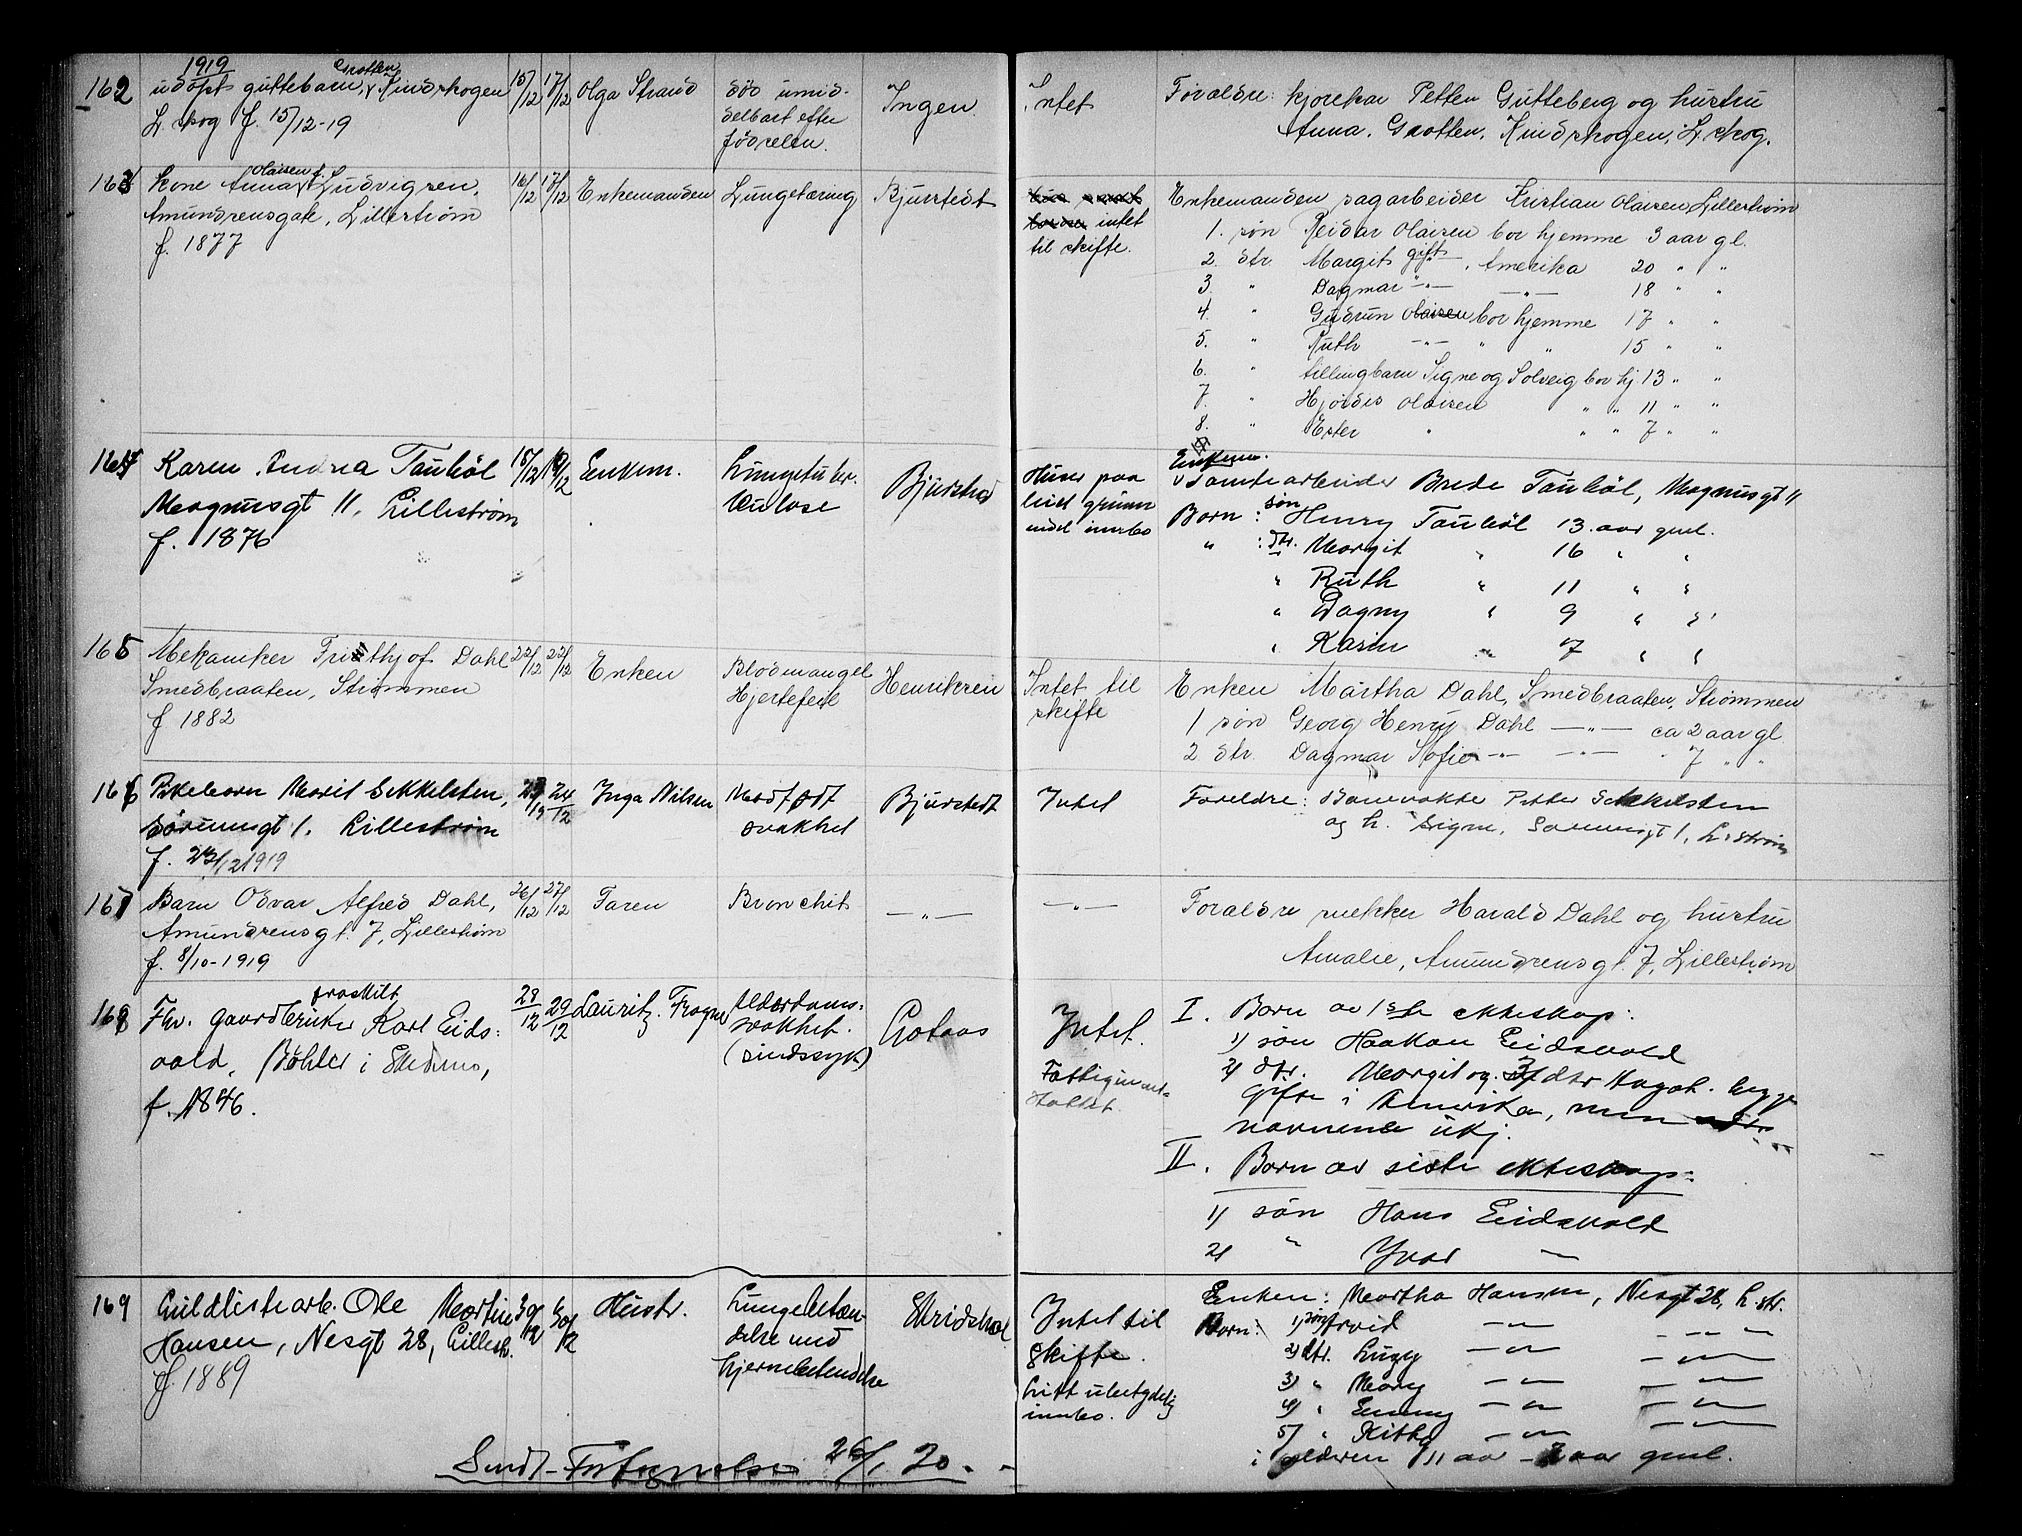 1919
162 udøpt guttebarn, Grotten, Kindskogen 15/12 17/12 Olga Strand død umid- Ingen. Intet Forældre: kjørekar Petter Gutteberg og hustru
L.skog f. 15/12-19 delbart efter Anna, Grotten, Kindskogen, L.skog.
fødselen.
163 Kone Anna Olaisen f. Ludvigsen, 16/12 17/12 Enkemanden Lungetæring Bjurstedt Enkemanden sagarbeider Kristian Olaisen, Lillestrøm
Amundsensgate, Lillestrøm intet 1. søn Reidar Olaisen bor hjemme 3 aar gl.
f. 1877 til skifte. 2. dtr. Margit gift —, Amerika 20 " "
3. " Dagmar —"— —"— 18 " "
4. " Gudrun Olaisen bor hjemme 17 " "
5. " Ruth —"— " " 15 " "
6. " tvillingbarn Signe og Solveig bor hj. 13 " "
7. " Hjørdis Olaisen " " 11 " "
8. " Ester " " " 7 " "
164 Karen Andrea Tauböl 15/12 19/12 Enkem. Lungetuber- Bjurstedt Huset paa Enkem. Tomtearbeider Brede Tauböl, Magnusgt 11
Magnusgt 11, Lillestrøm kulose leiet grunn Barn: søn Henry Tauböl 13 aar gml.
f. 1876 med innbo " : dtr. Margit " 16 " "
" Ruth " 11 " "
" Dagny " 9 " "
" Karin " 7 " "
165 Mekaniker Frithjof Dahl 22/12 22/12 Enken Blodmangel Henriksen Intet til Enken Märtha Dahl, Smedbraaten, Strømmen
Smedbraaten, Strømmen Hjertefeil skifte 1 søn Georg Henry Dahl —"— ca 2 aar gl.
f 1882 2 dtr. Dagmar Sofie —"— —"— " 7 " "
166 Pikebarn Marit Sekkelsten, 23/12 24/12 Inga Nilsen Medfødt Bjurstedt Intet Foreldre: Banevokter Petter Sekkelsten
Sørumsgt 1. Lillestrøm svakhet og h. Signe, Sørumsgt 1, L.strøm
f. 23/12 1919
167 Barn Odvar Alfred Dahl, 26/12 27/12 Faren Bronchit —"— —"— Forældre snekker Harald Dahl og hustru
Amundsensgt. 7, Lillestrøm Amalie, Amundsensgt. 7, Lillestrøm
f. 8/10-1919
168 Fhv. gaardbruker fraskilt Karl Eids- 28/12 29/12 Lauritz Fragner Alderdoms- Gotaas Intet. I. Barn av 1ste ekteskap:
vold, Bøhler i Skedsmo, svakhet. 1) søn Haakon Eidsvold
f. 1846. (sindssyk) Fattigun- 2) dtr. Margit og 3) dtr Aagot. begge
gifte i Amerika, men
navnene ukj.
II. Barn av siste ekteskap:
1) søn Hans Eidsvold
2) " Yvar —
169 Ole Martin 30/12 30/12 Hustr. Lungebeten- Intet til Enken: Martha Hansen, Nesgt 28, L.str.
Hansen, Nesgt 28, Lillestr. delse med skifte. Barn: 1) søn Arvid —"— —"—
f 1889 hjernebetendelse Litt ubetydelig 2) dtr. Lugy —"— —"—
innbo. 3) " Mary —"— —"—
4) " Emmy —"— —"—
5) " —"— —"—
i alderen 11 aar - 2 aar gml.
Sendt 26/1 20.